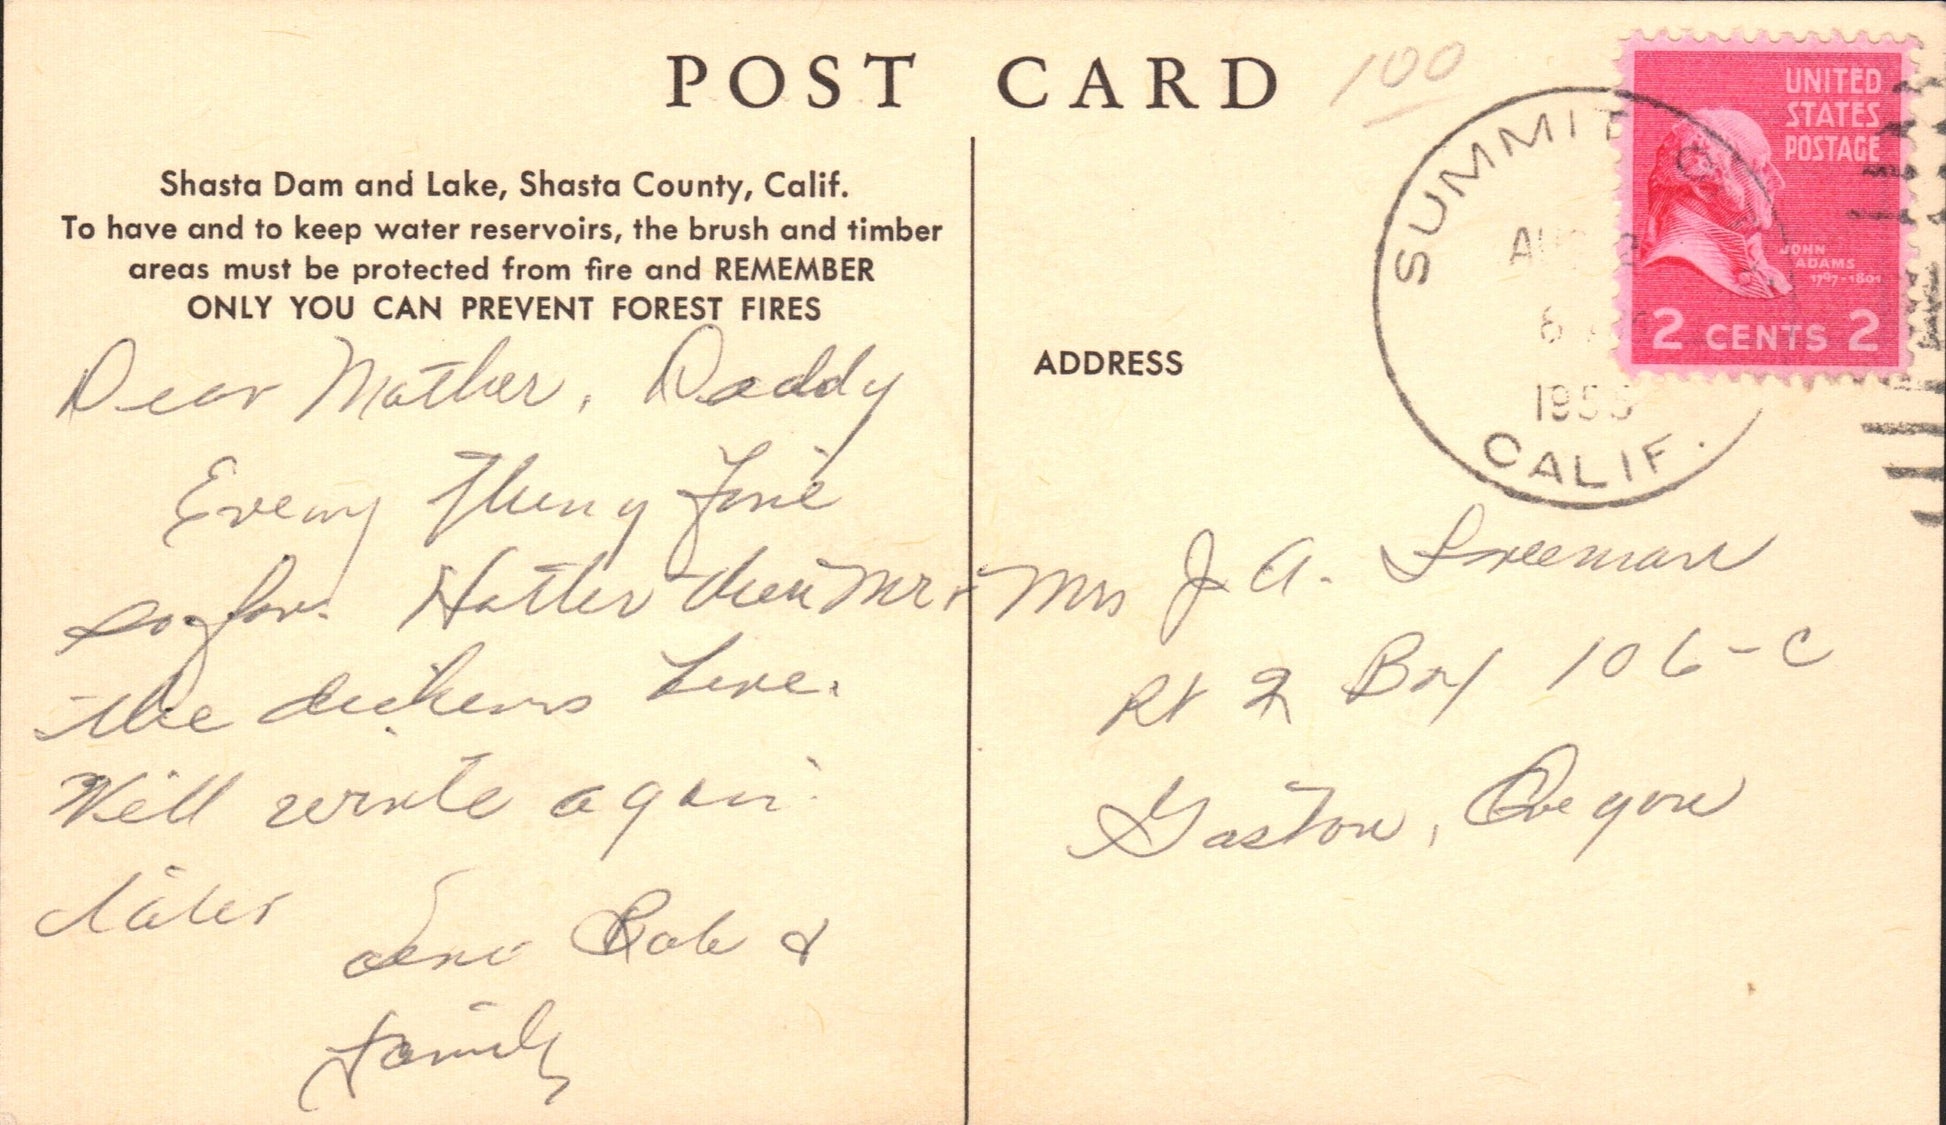 POST CARD
100
Shasta Dam and Lake, Shasta County, Calif.
To have and to keep water reservoirs, the brush and timber
areas must be protected from fire and REMEMBER
ONLY YOU CAN PREVENT FOREST FIRES
Dear Mother, Daddy
Every Thing Fine
so far. Hotter then
the dickens here.
Will write again
later
Bob &
Family
UNITED
STATES
POSTAGE
JOHN
ADAMS
1797-1801
2 CENTS 2
SUMMIT CITY
AUG 2
8
195
CALIF.
ADDRESS
Mr + Mrs J. A. Freeman
Rt 2 Box 106-C
Gaston, Oregon